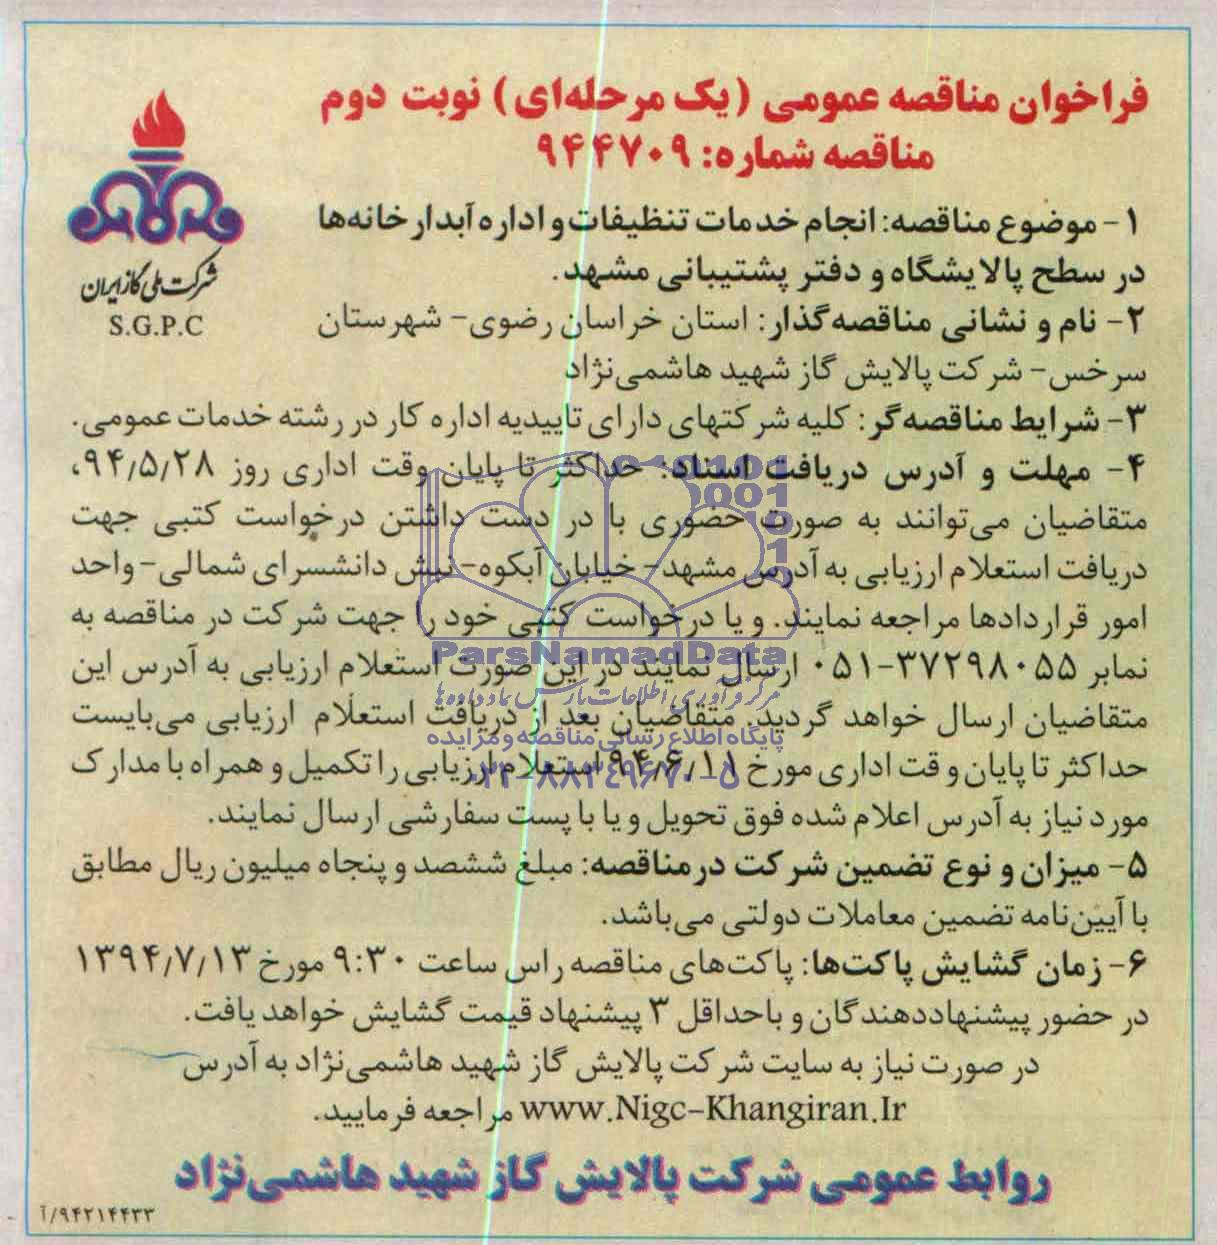 فراخوان مناقصه عمومی (یک مرحله‌ای) نوبت دوم
مناقصه شماره: ۹۴۴۷۰۹
شرکت ملی گاز ایران
S.G.P.C
۱- موضوع مناقصه: انجام خدمات تنظیفات و اداره آبدارخانه‌ها
در سطح پالایشگاه و دفتر پشتیبانی مشهد.
۲- نام و نشانی مناقصه‌گذار: استان خراسان رضوی- شهرستان
سرخس- شرکت پالایش گاز شهید هاشمی‌نژاد
۳- شرایط مناقصه‌گر: کلیه شرکتهای دارای تاییدیه اداره کار در رشته خدمات عمومی.
۴- مهلت و آدرس دریافت اسناد: حداکثر تا پایان وقت اداری روز ۹۴/۵/۲۸،
متقاضیان می‌توانند به صورت حضوری با در دست داشتن درخواست کتبی جهت
دریافت استعلام ارزیابی به آدرس مشهد- خیابان آبکوه- نبش دانشسرای شمالی- واحد
امور قراردادها مراجعه نمایند. و یا درخواست کتبی خود را جهت شرکت در مناقصه به
نمابر ۳۷۲۹۸۰۵۵-۰۵۱ ارسال نمایند در این صورت استعلام ارزیابی به آدرس این
متقاضیان ارسال خواهد گردید. متقاضیان بعد از دریافت استعلام ارزیابی می‌بایست
حداکثر تا پایان وقت اداری مورخ ۹۴/۶/۱۱ استعلام ارزیابی را تکمیل و همراه با مدارک
مورد نیاز به آدرس اعلام شده فوق تحویل و یا با پست سفارشی ارسال نمایند.
۵- میزان و نوع تضمین شرکت در مناقصه: مبلغ ششصد و پنجاه میلیون ریال مطابق
با آیین‌نامه تضمین معاملات دولتی می‌باشد.
۶- زمان گشایش پاکت‌ها: پاکت‌های مناقصه راس ساعت ۹:۳۰ مورخ ۱۳۹۴/۷/۱۳
در حضور پیشنهاددهندگان و باحداقل ۳ پیشنهاد قیمت گشایش خواهد یافت.
در صورت نیاز به سایت شرکت پالایش گاز شهید هاشمی‌نژاد به آدرس
www.Nigc-Khangiran.Ir مراجعه فرمایید.
روابط عمومی شرکت پالایش گاز شهید هاشمی‌نژاد
۹۴۲۱۴۴۳۳/آ
ParsNamadData
مرکز فرآوری اطلاعات پارس نماد داده‌ها
پایگاه اطلاع رسانی مناقصه و مزایده
۰۲۱-۸۸۳۴۹۶۷۰-۵